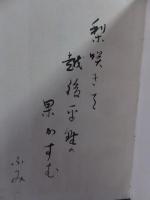 梨咲きて
越後平野の
果かすむ
ふみ